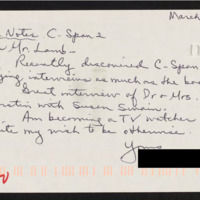 March
Notes C-Span 2
Mr. Lamb -
Recently discovered C-Span
interviews as much as the boo
Great interview of Dr & Mrs.
with Susan Swain.
Am becoming a TV watcher
my wish to be otherwise.
Yours